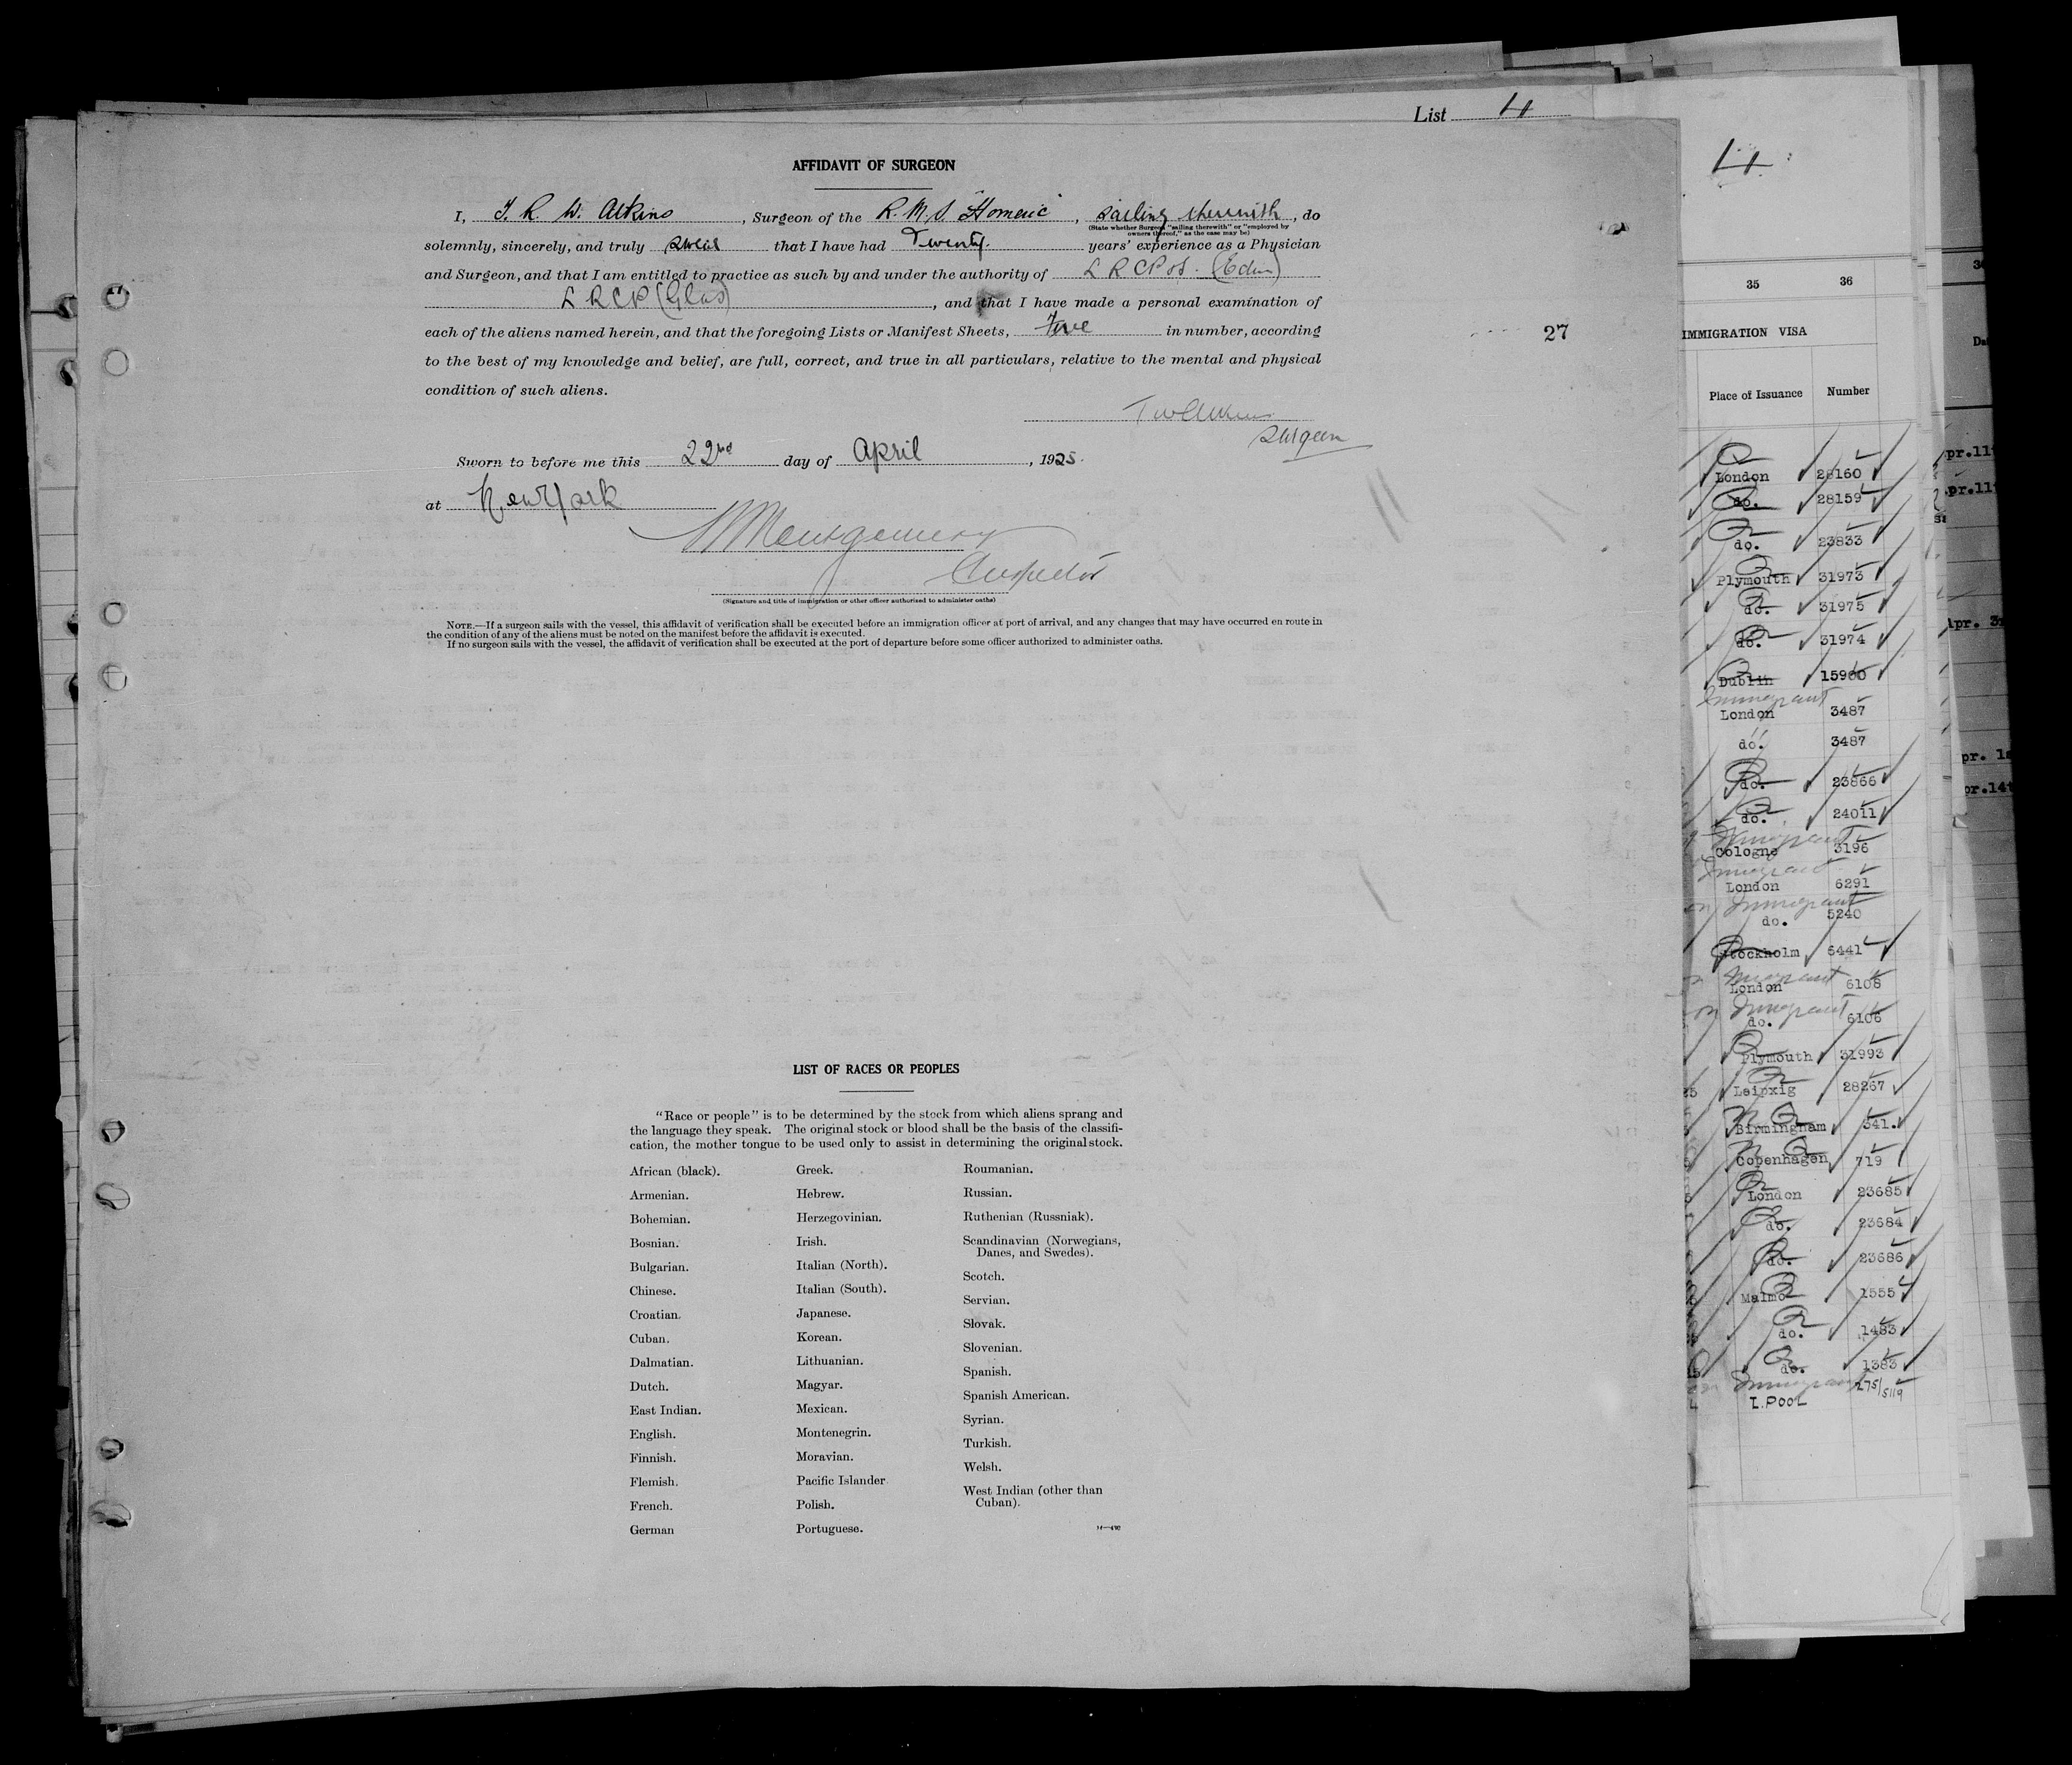 List 4
AFFIDAVIT OF SURGEON
I, T. R. W. Atkins, Surgeon of the R.M.S. "Homeric", sailing therewith, do
(State whether Surgeon "sailing therewith" or "employed by
owners thereof," as the case may be)
solemnly, sincerely, and truly swear that I have had Twenty years' experience as a Physician
and Surgeon, and that I am entitled to practice as such by and under the authority of L R C P &S. (Edin)
L R C P (Glas), and that I have made a personal examination of
each of the aliens named herein, and that the foregoing Lists or Manifest Sheets, five in number, according
to the best of my knowledge and belief, are full, correct, and true in all particulars, relative to the mental and physical
condition of such aliens.
Surgeon
Sworn to before me this 22nd day of April, 1925.
at New York
Montgomery
Inspector
(Signature and title of immigration or other officer authorized to administer oaths)
NOTE.—If a surgeon sails with the vessel, this affidavit of verification shall be executed before an immigration officer at port of arrival, and any changes that may have occurred en route in
the condition of any of the aliens must be noted on the manifest before the affidavit is executed.
If no surgeon sails with the vessel, the affidavit of verification shall be executed at the port of departure before some officer authorized to administer oaths.
27
LIST OF RACES OR PEOPLES
"Race or people" is to be determined by the stock from which aliens sprang and
the language they speak. The original stock or blood shall be the basis of the classifi-
cation, the mother tongue to be used only to assist in determining the original stock.
African (black).
Armenian.
Bohemian.
Bosnian.
Bulgarian.
Chinese.
Croatian.
Cuban.
Dalmatian.
Dutch.
East Indian.
English.
Finnish.
Flemish.
French.
German
Greek.
Hebrew.
Herzegovinian.
Irish.
Italian (North).
Italian (South).
Japanese.
Korean.
Lithuanian.
Magyar.
Mexican.
Montenegrin.
Moravian.
Pacific Islander
Polish.
Portuguese.
Roumanian.
Russian.
Ruthenian (Russniak).
Scandinavian (Norwegians,
Danes, and Swedes).
Scotch.
Servian.
Slovak.
Slovenian.
Spanish.
Spanish American.
Syrian.
Turkish.
Welsh.
West Indian (other than
Cuban).
4
35 36
IMMIGRATION VISA
Place of Issuance Number
London 28160
do. 28159
do. 23833
Plymouth 31973
do. 31975
do. 31974
Dublin 15900
Immigrant
London 3487
do. 3487
do. 23866
do. 24011
Immigrant
Cologne 3196
Immigrant
London 6291
Immigrant
do. 5240
Stockholm 6441
Immigrant
London 6108
Immigrant
do. 6106
Plymouth 31993
Leipzig 28267
Birmingham 341.
Copenhagen 719
London 23685
do. 23684
do. 23686
Malmo 1555
do. 1483
do. 1383
Immigrant
L.POOL 275/5119
pr.11
pr.11
Apr. 3
pr. 1
pr.14